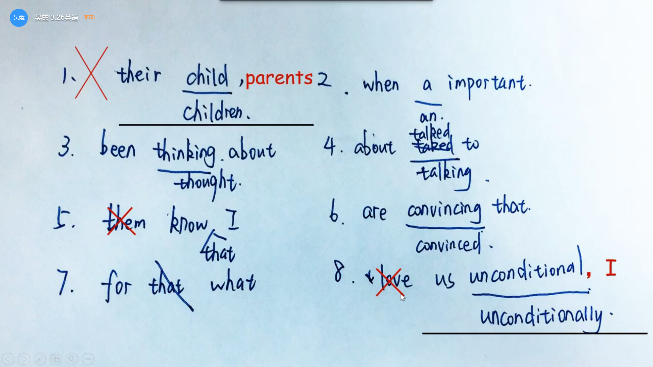 1. their child , parents 2. when a important.
children.
an.
3. been thinking about 4. about talked to
thought.
talking.
5. them know I 6. are convincing that.
that
convinced.
7. for that what 8. love us unconditional, I
unconditionally.